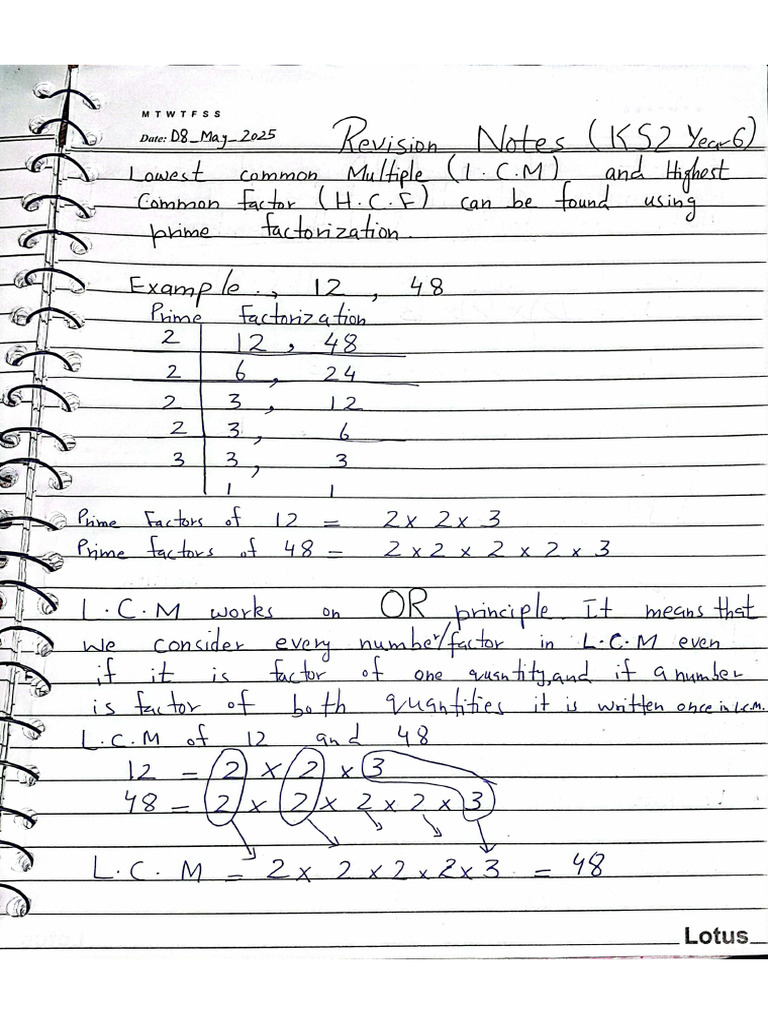 M T W T F S S
Date: 08_May_2025
Revision Notes (KS2 Year 6)
Lowest common Multiple (L.C.M) and Highest
Common factor (H.C.F) can be found using
prime factorization.
Example., 12 , 48
Prime Factorization
2 12 , 48
2 6 , 24
2 3 , 12
2 3 , 6
3 3 , 3
1 1
Prime Factors of 12 = 2 x 2 x 3
Prime factors of 48 = 2 x 2 x 2 x 2 x 3
L.C.M works on OR principle. It means that
we consider every number/factor in L.C.M even
if it is factor of one quantity, and if a number
is factor of both quantities it is written once in L.C.M.
L.C.M of 12 and 48
12 = 2 x 2 x 3
48 = 2 x 2 x 2 x 2 x 3
L.C.M = 2 x 2 x 2 x 2 x 3 = 48
Lotus